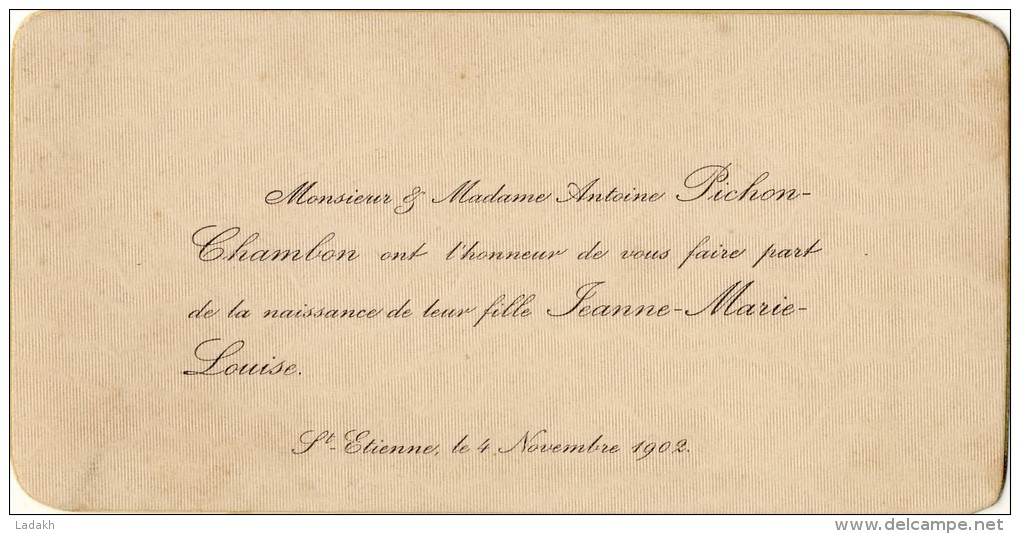 Monsieur & Madame Antoine Pichon-
Chambon ont l'honneur de vous faire part
de la naissance de leur fille Jeanne-Marie-
Louise.
St-Etienne, le 4 Novembre 1902.
Ladakh
www.delcampe.net